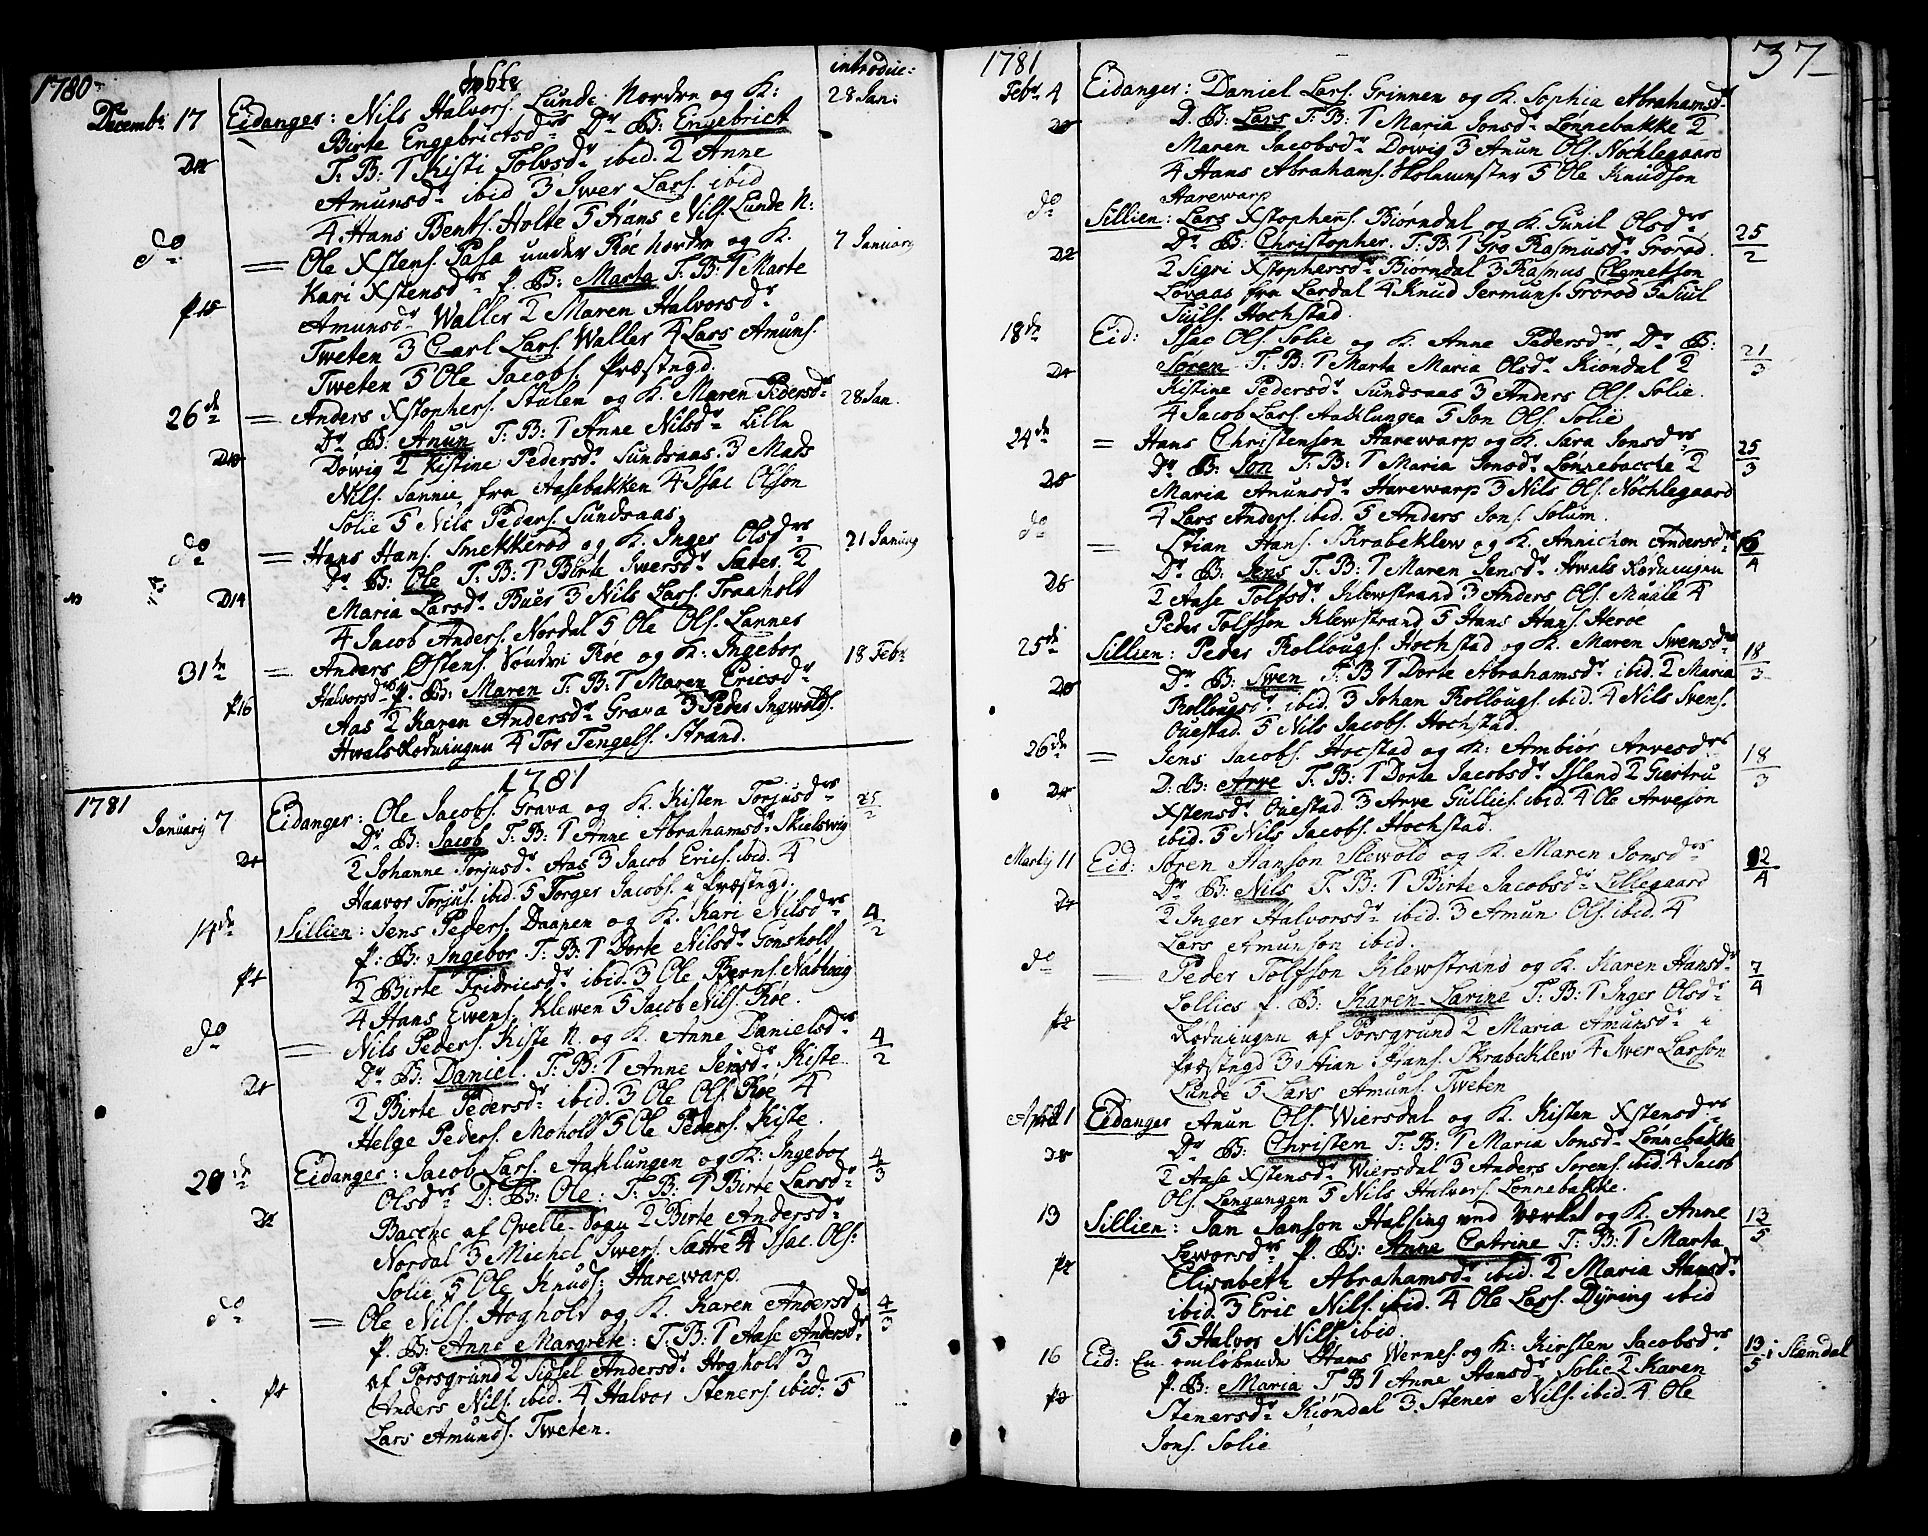 1780
Døbte
introduc:
Decembr 17 Eidanger: Nils Halvors. Lunde Nordre og K: 28 Jan:
Birte Engebrictsdrs Dr B: Engebrict
T. B: 1 Kisti Tolvsdr ibid. 2 Anne
Amunsdr ibid 3 Iwer Lars. ibid
4. Hans Bents. Holte 5 Hans Nils. Lunde N:
do = Ole Xstens. Pasa under Røe Nordre og K. 7 January
Kari Xstensdrs p. B: Marta T. B: 1 Marte
Amunsdr Waller 2 Maren Halvorsdr
Tweten 3 Carl Lars. Waller 4 Lars Amuns.
Tweten 5 Ole Jacobs. Præstegd.
26de = Anders Xstophers. Stulen og K. Maren Pedersdrs 28 Jan.
Dr B: Anun T. B: 1 Anne Nilsdr Lille
Døwig 2 Kistine Pedersdr Sundsaas. 3 Mads
Nils. Sannie fra Aasebakken 4 Isac Olson
Solie 5 Nils Peders. Sundsaas.
do = Hans Hans. Smekkerød og K. Inger Olsdrs 21 January
Dr B: Ole T. B: 1 Birte Iwersdr Sæter 2
D14 Maria Larsdr Buer 3 Nils Lars. Traaholt
4 Jacob Anders. Nordal 5 Ole Ols. Lannes
31te = Anders Østens. Søndri Røe og K: Ingebor 18 Febr
Halvorsdrs p. B: Maren T. B: 1 Maren Ericsdr
P16 Aas 2 Karen Andersdr Grava 3 Peder Ingwolds.
Hwals Kodningen 4 Tor Tengels. Strand.
1781
1781 January 7 Eidanger: Ole Jacobs. Grava og K. Kisten Torjusdrs 25/2
Dr B: Jacob T. B: 1 Anne Abrahamsdr Skielswig
2 Johanne Torjusdr Aas 3 Jacob Erics. ibid. 4
Haavor Torjus. ibid. 5 Torger Jacobs. i Præstegd.
14de Sillien: Jens Peders. Daapen og K. Kari Nilsdrs 4/2
p. B: Ingebor T. B: 1 Dorte Nilsdr Gonsholt
2 Birte Fridricsdr ibid. 3 Ole Berns. Nablwig
4 Hans Ewens. Klewen 5 Jacob Nils. Røe.
do = Nils Peders. Kiste N. og K. Anne Danielsdrs 4/2
Dr B: Daniel. T. B: 1 Anne Jensdr Kiste
2 Birte Pedersdr ibid. 3 Ole Ols. Røe 4
Helge Peders. Moholt 5 Ole Peders. Kiste.
Eidanger: Jacob Lars. Aaklungen og K: Ingebor 4/3
Olsdrs D. B: Ole. T. B: 1 Birte Larsdr
Bacche af Qvelle-Sogn 2 Birte Andersdr
Nordal 3 Michel Iwers. Sættre 4 Isac Ols:
Solie 5 Ole Knuds. Harewarp.
do = Ole Nils. Hogholt og K. Karen Andersdrs 4/3
p. B: Anne Margrete: T. B: 1 Aase Andersdr
af Porsgrund 2 Sidsel Andersdr Hogholt 3
Anders Nils. ibid. 4 Halvor Steners. ibid: 5
Lars Amunds. Tweten.
1781
37
Febr 4 Eidanger: Daniel Lars. Grinnen og K. Sophia Abrahamsdr
D. B: Lars T. B: 1 Maria Jonsdr Lønnebakke 2
Maren Jacobsdr Døwig 3 Anun Ols. Nøchlegaard
4 Hans Abrahams. Skolmester 5 Ole Knudson
Harewarp
do Sillien: Lars Xstophers. Biørndal og K. Gunil Olsdrs 25/2
Dr B: Christopher. T. B: 1 Gro Rasmusdr Grorød
2 Sigri Xstophersdr Biørndal 3 Rasmus Clemetson
Løvaas fra Lardal 4 Knud Jermuns. Grorød 5 Siul
Siuls. Hochstad.
18de Eid: Isac Ols. Solie og K. Anne Pedersdrs, Dr B: 21/3
Søren T. B: 1 Marta Maria Olsdr Kiøndal 2
Kistine Pedersdr Sundsaas 3 Anders Ols. Solie.
4 Jacob Lars. Aaklungen 5 Jon Ols. Solie
24de = Hans Christenson Harewarp og K. Sara Jonsdrs 25/3
Dr B: Jon T. B: 1 Maria Jonsdr Lønnebacche 2
Maria Anunsdr Harewarp 3 Nils Ols. Nøchlegaard
4 Lars Anders. ibid. 5 Anders Jons. Solum.
do = Stian Hans. Skrabeklew og K. Annichen Andersdrs
Dr B: Jens T. B: 1 Maren Jensdr Hwals Kodningen
2 Aase Tolfsdr Klewstrand 3 Anders Ols. Mule 4
Peder Tolfsson Klewstrand 5 Hans Hans. Herøe
25de Sillien: Peder Rollougs. Hochstad og K. Maren Swensdrs 18/3
Dr B: Swen T. B: 1 Dorte Abrahamsdr ibid. 2 Maria
Rollougsdr ibid. 3 Johan Rollougs. ibid. 4 Nils Svens.
Ouestad. 5 Nils Jacobs. Hochstad.
26de = Jens Jacobs. Hocstad og K. Ambiør Arvesdrs 18/3
D. B: Arve T. B: 1 Dorte Jacobsdr Island 2 Giertru
Xstensdr Ouestad. 3 Arve Gullics. ibid. 4 Ole Arveson
ibid. 5 Nils Jacobs. Hochstad.
Martij 11 Eid: Søren Hanson Slewold og K. Maren Jonsdrs
Dr B: Nils T. B: 1 Birte Jacobsdr Lillegaard
2 Inger Halvorsdr ibid. 3 Amun Ols. ibid. 4
Lars Amunson ibid.
do = Peder Tolfson Klewstrand og K. Karen Hansdr 7/4
Lollics p. B: Karen Larine T. B: 1 Inger Olsdr
Kodningen af Porsgrund 2 Maria Amunsdr i
Præstegd 3 Stian Hans. Skrabeklew 4 Iwer Larson
Lunde 5 Lars Amuns. Tweten
April 1 Eidanger Anun Ols. Wiersdal og K. Kisten Xstensdrs
Dr B: Christen T. B: 1 Maria Jonsdr Lønnebakke
2 Aase Xstensdr Wiersdal 3 Anders Sørens. ibid. 4 Jacob
Ols. Langangen 5 Nils Halvors. Lønnebakke.
13 Sillien: Jan Janson Halsing ved Værket og K. Anne 13/5
Leworsdrs p. B: Anne Catrine T. B: 1 Marta
Elisabeth Abrahamsdr ibid. 2 Maria Hansdr
ibid. 3 Eric Nils. ibid. 4 Ole Lars. Dyring ibid
5 Halvor Nils. ibid
16 Eid: En omløbende Hans Wernes. og K. Kirsten Jacobsdr. 13/5 i Slemdal
p. B: Maria T B 1 Anne Hansdr Solie 2 Karen
Stenersdr Kiøndal 3. Stener Nils. ibid. 4 Ole
Jons. Solie